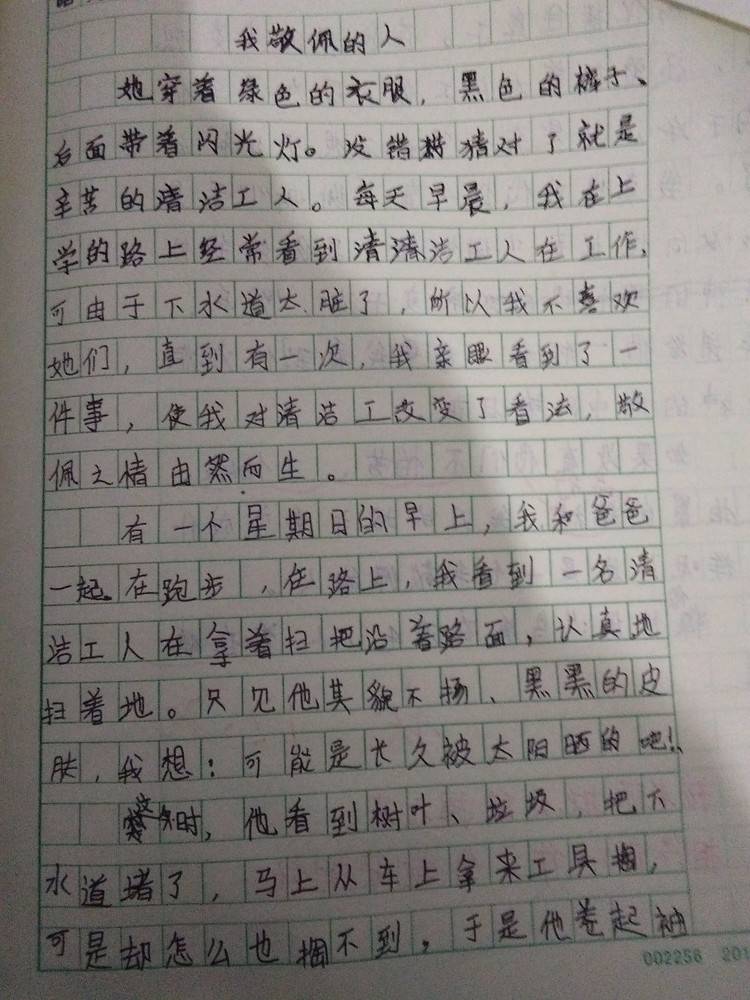 我敬佩的人
她穿着绿色的衣服，黑色的裤子、
后面带着闪光灯。没错猜对了就是
辛苦的清洁工人。每天早晨，我在上
学的路上经常看到清清洁工人在工作，
可由于下水道太脏了，所以我不喜欢
她们，直到有一次，我亲眼看到了一
件事，使我对清洁工改变了看法，敬
佩之情由然而生。
有一个星期日的早上，我和爸爸
一起。在跑步，在路上，我看到一名清
洁工人在拿着扫把沿着路面，认真地
扫着地。只见他其貌不扬、黑黑的皮
肤，我想：可能是长久被太阳晒的吧！
这时，他看到树叶、垃圾，把下
水道堵了，马上从车上拿来工具掏，
可是却怎么也掏不到。于是他卷起袖
002256 201